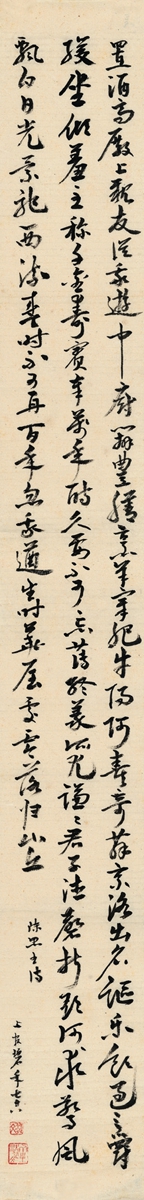 置酒高殿上親友從我遊中廚辦豐膳烹羊宰肥牛陽阿奏奇舞京洛出名謳樂飲過三爵
緩坐傾羞主稱千金壽賓奉萬年酬久要不可忘薄終義所尤謙謙君子德磬折欲何求驚風
飄白日光景馳西流盛時不可再百年忽我遒生時華屋處零落歸山丘
陳思王詩
上官碧年